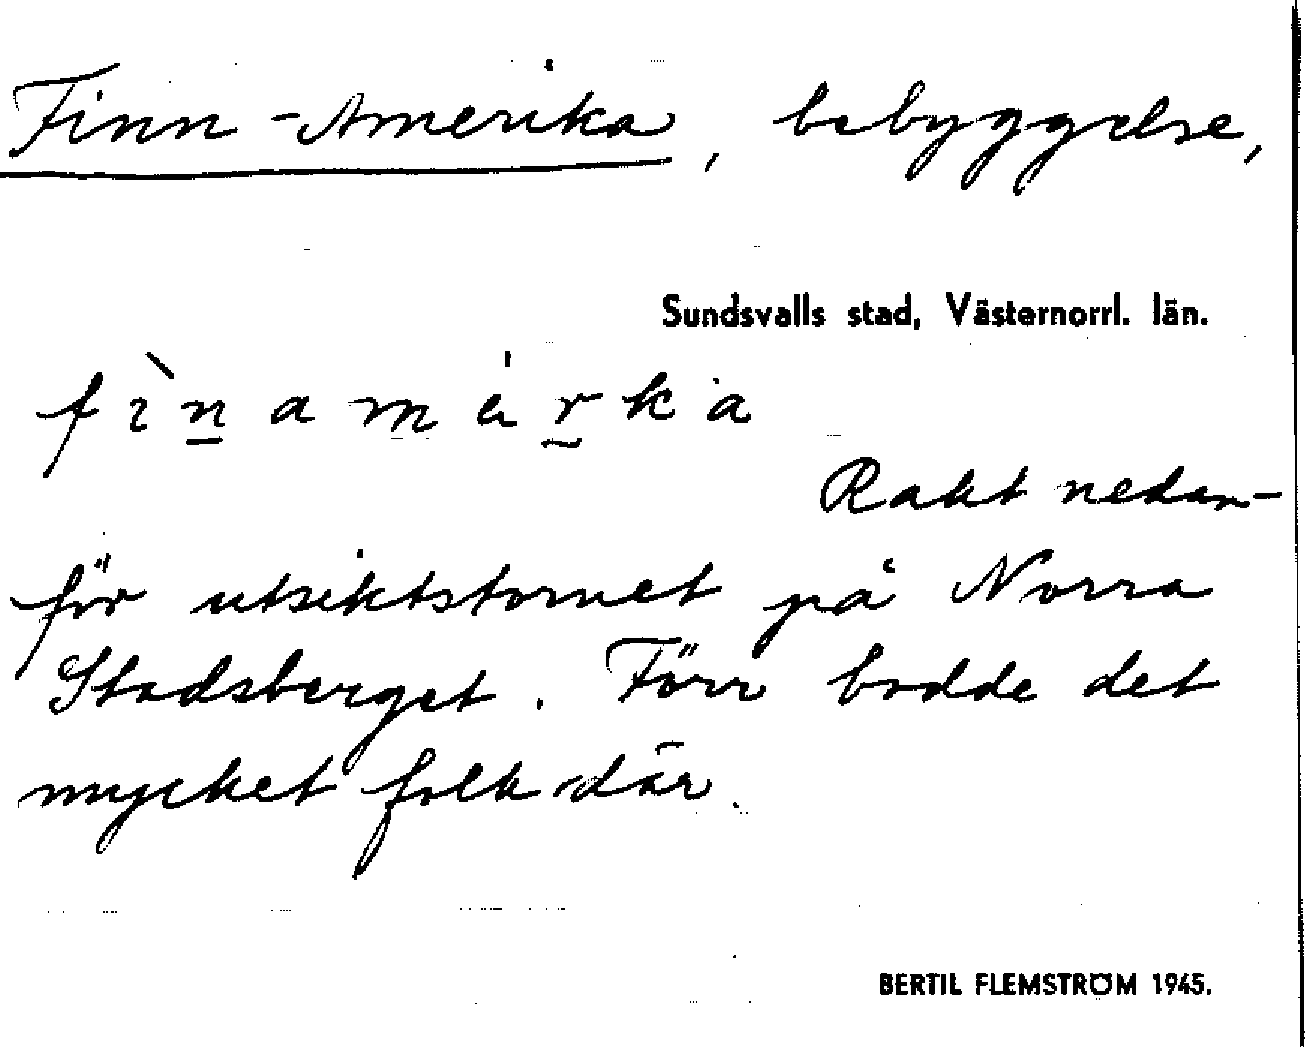 Finn-Amerika, bebyggelse,
Sundsvalls stad, Västernorrl. län.
fìnamärka
Rakt nedan-
för utsiktstornet på Norra
Stadsberget. Förr bodde det
mycket folk där.
BERTIL FLEMSTRÖM 1945.